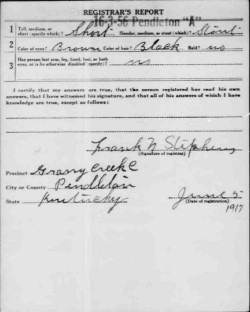 REGISTRAR'S REPORT
16-3-56 Pendleton "A"
1 Tall, medium, or short (specify which)? Short Slender, medium, or stout (which)? Stout
2 Color of eyes? Brown Color of hair? Black Bald? no
3 Has person lost arm, leg, hand, foot, or both eyes, or is he otherwise disabled (specify)? no
I certify that my answers are true, that the person registered has read his own answers, that I have witnessed his signature, and that all of his answers of which I have knowledge are true, except as follows:
Frank N Stephens
(Signature of registrar)
Precinct Grassy Creek C
City or County Pendleton
State Kentucky
June 5
1917
(Date of registration)